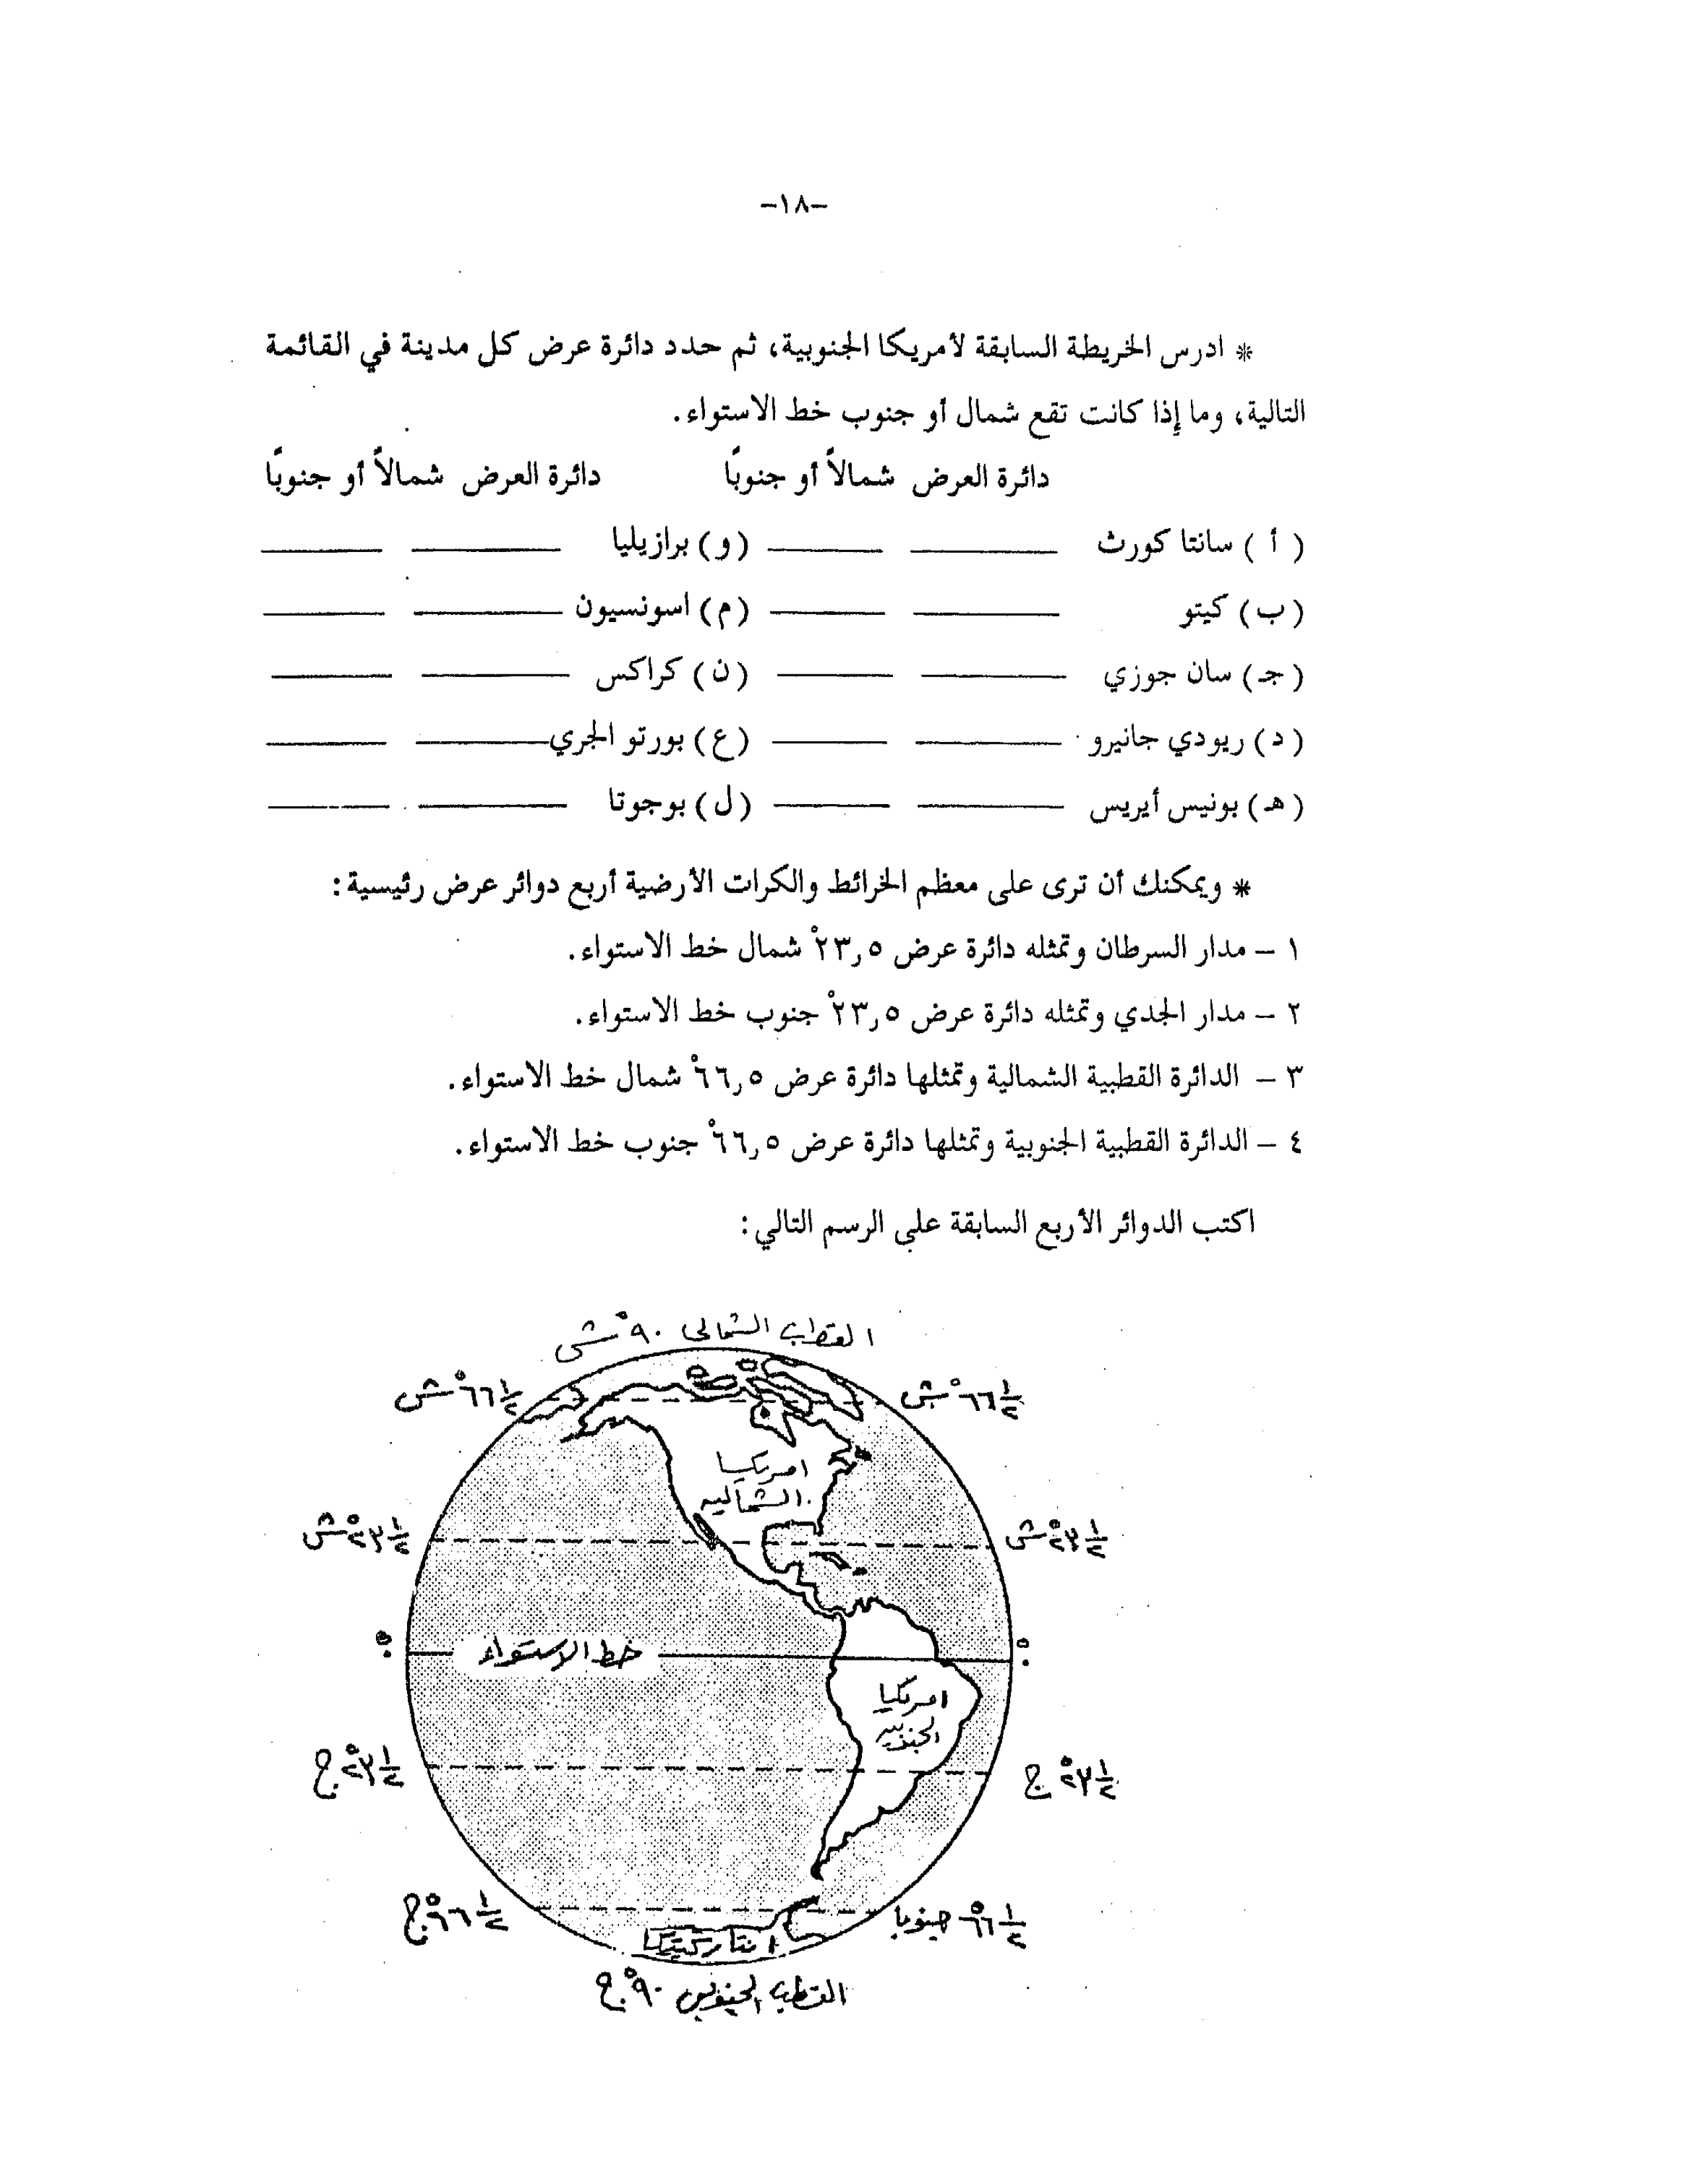 -١٨-
* ادرس الخريطة السابقة لأمريكا الجنوبية، ثم حدد دائرة عرض كل مدينة في القائمة
التالية، وما إذا كانت تقع شمال أو جنوب خط الاستواء.
دائرة العرض شمالاً أو جنوبًا دائرة العرض شمالاً أو جنوبًا
( أ ) سانتا كورث ـــــ ـــــ (و) برازيليا ـــــ ـــــ
(ب) كيتو ـــــ ـــــ (م) اسونسيون ـــــ ـــــ
(جـ) سان جوزي ـــــ ـــــ (ن) كراكس ـــــ ـــــ
(د) ريودي جانيرو ـــــ ـــــ (ع) بورتو الجري ـــــ ـــــ
(هـ) بونيس أيريس ـــــ ـــــ (ل) بوجوتا ـــــ ـــــ
* ويمكنك أن ترى على معظم الخرائط والكرات الأرضية أربع دوائر عرض رئيسية:
١ – مدار السرطان وتمثله دائرة عرض ٢٣,٥° شمال خط الاستواء.
٢ – مدار الجدي وتمثله دائرة عرض ٢٣,٥° جنوب خط الاستواء.
٣ – الدائرة القطبية الشمالية وتمثلها دائرة عرض ٦٦,٥° شمال خط الاستواء.
٤ – الدائرة القطبية الجنوبية وتمثلها دائرة عرض ٦٦,٥° جنوب خط الاستواء.
اكتب الدوائر الأربع السابقة على الرسم التالي:
القطب الشمالى ٩٠° ش
٦٦ ١/٢° ش ٦٦ ١/٢° ش
امريكيا
الشماليه
٢٣ ١/٢° ش ٢٣ ١/٢° ش
٠° خط الاستواء ٠°
امريكيا
الجنوبيه
٢٣ ١/٢° ج ٢٣ ١/٢° ج
٦٦ ١/٢° جنوبا ٦٦ ١/٢° ج
انتاركتيكا
القطب الجنوبى ٩٠° ج